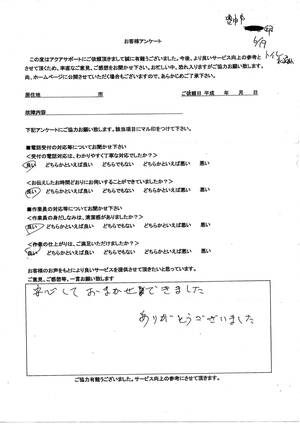 豊中市
邸
6/19
トイレ
お客様アンケート
この度はアクアサポートにご依頼頂きまして誠に有難うございました。今後、より良いサービス向上の参考と
させて頂くため、率直なご意見、ご感想をお聞かせ下さい。お忙しい中、恐れ入りますがご協力お願い致します。
尚、ホームページに公開させていただく場合もございますので、あらかじめご了承下さい。
居住地 市 ご依頼日 平成 年 月 日
故障内容
下記アンケートにご協力お願い致します。該当項目にマル印をつけて下さい。
■電話受付の対応等についてお聞かせ下さい
<受付の電話対応は、わかりやすく丁寧な対応でしたか?>
良い どちらかといえば良い どちらでもない どちらかといえば悪い 悪い
<お伝えしたお時間どおりにお伺いすることができていましたか?>
良い どちらかといえば良い どちらでもない どちらかといえば悪い 悪い
■作業員の対応等についてお聞かせ下さい
<作業員の身だしなみは、清潔感がありましたか?>
良い どちらかといえば良い どちらでもない どちらかといえば悪い 悪い
<作業の仕上がりは、ご満足いただけましたか?>
良い どちらかといえば良い どちらでもない どちらかといえば悪い 悪い
お客様のお声をもとにより良いサービスを提供させて頂きたいと思っています。
ご意見、ご感想等、一言お願い致します
安心しておまかせできました
ありがとうございました
ご協力有難うございました。サービス向上の参考にさせて頂きます。